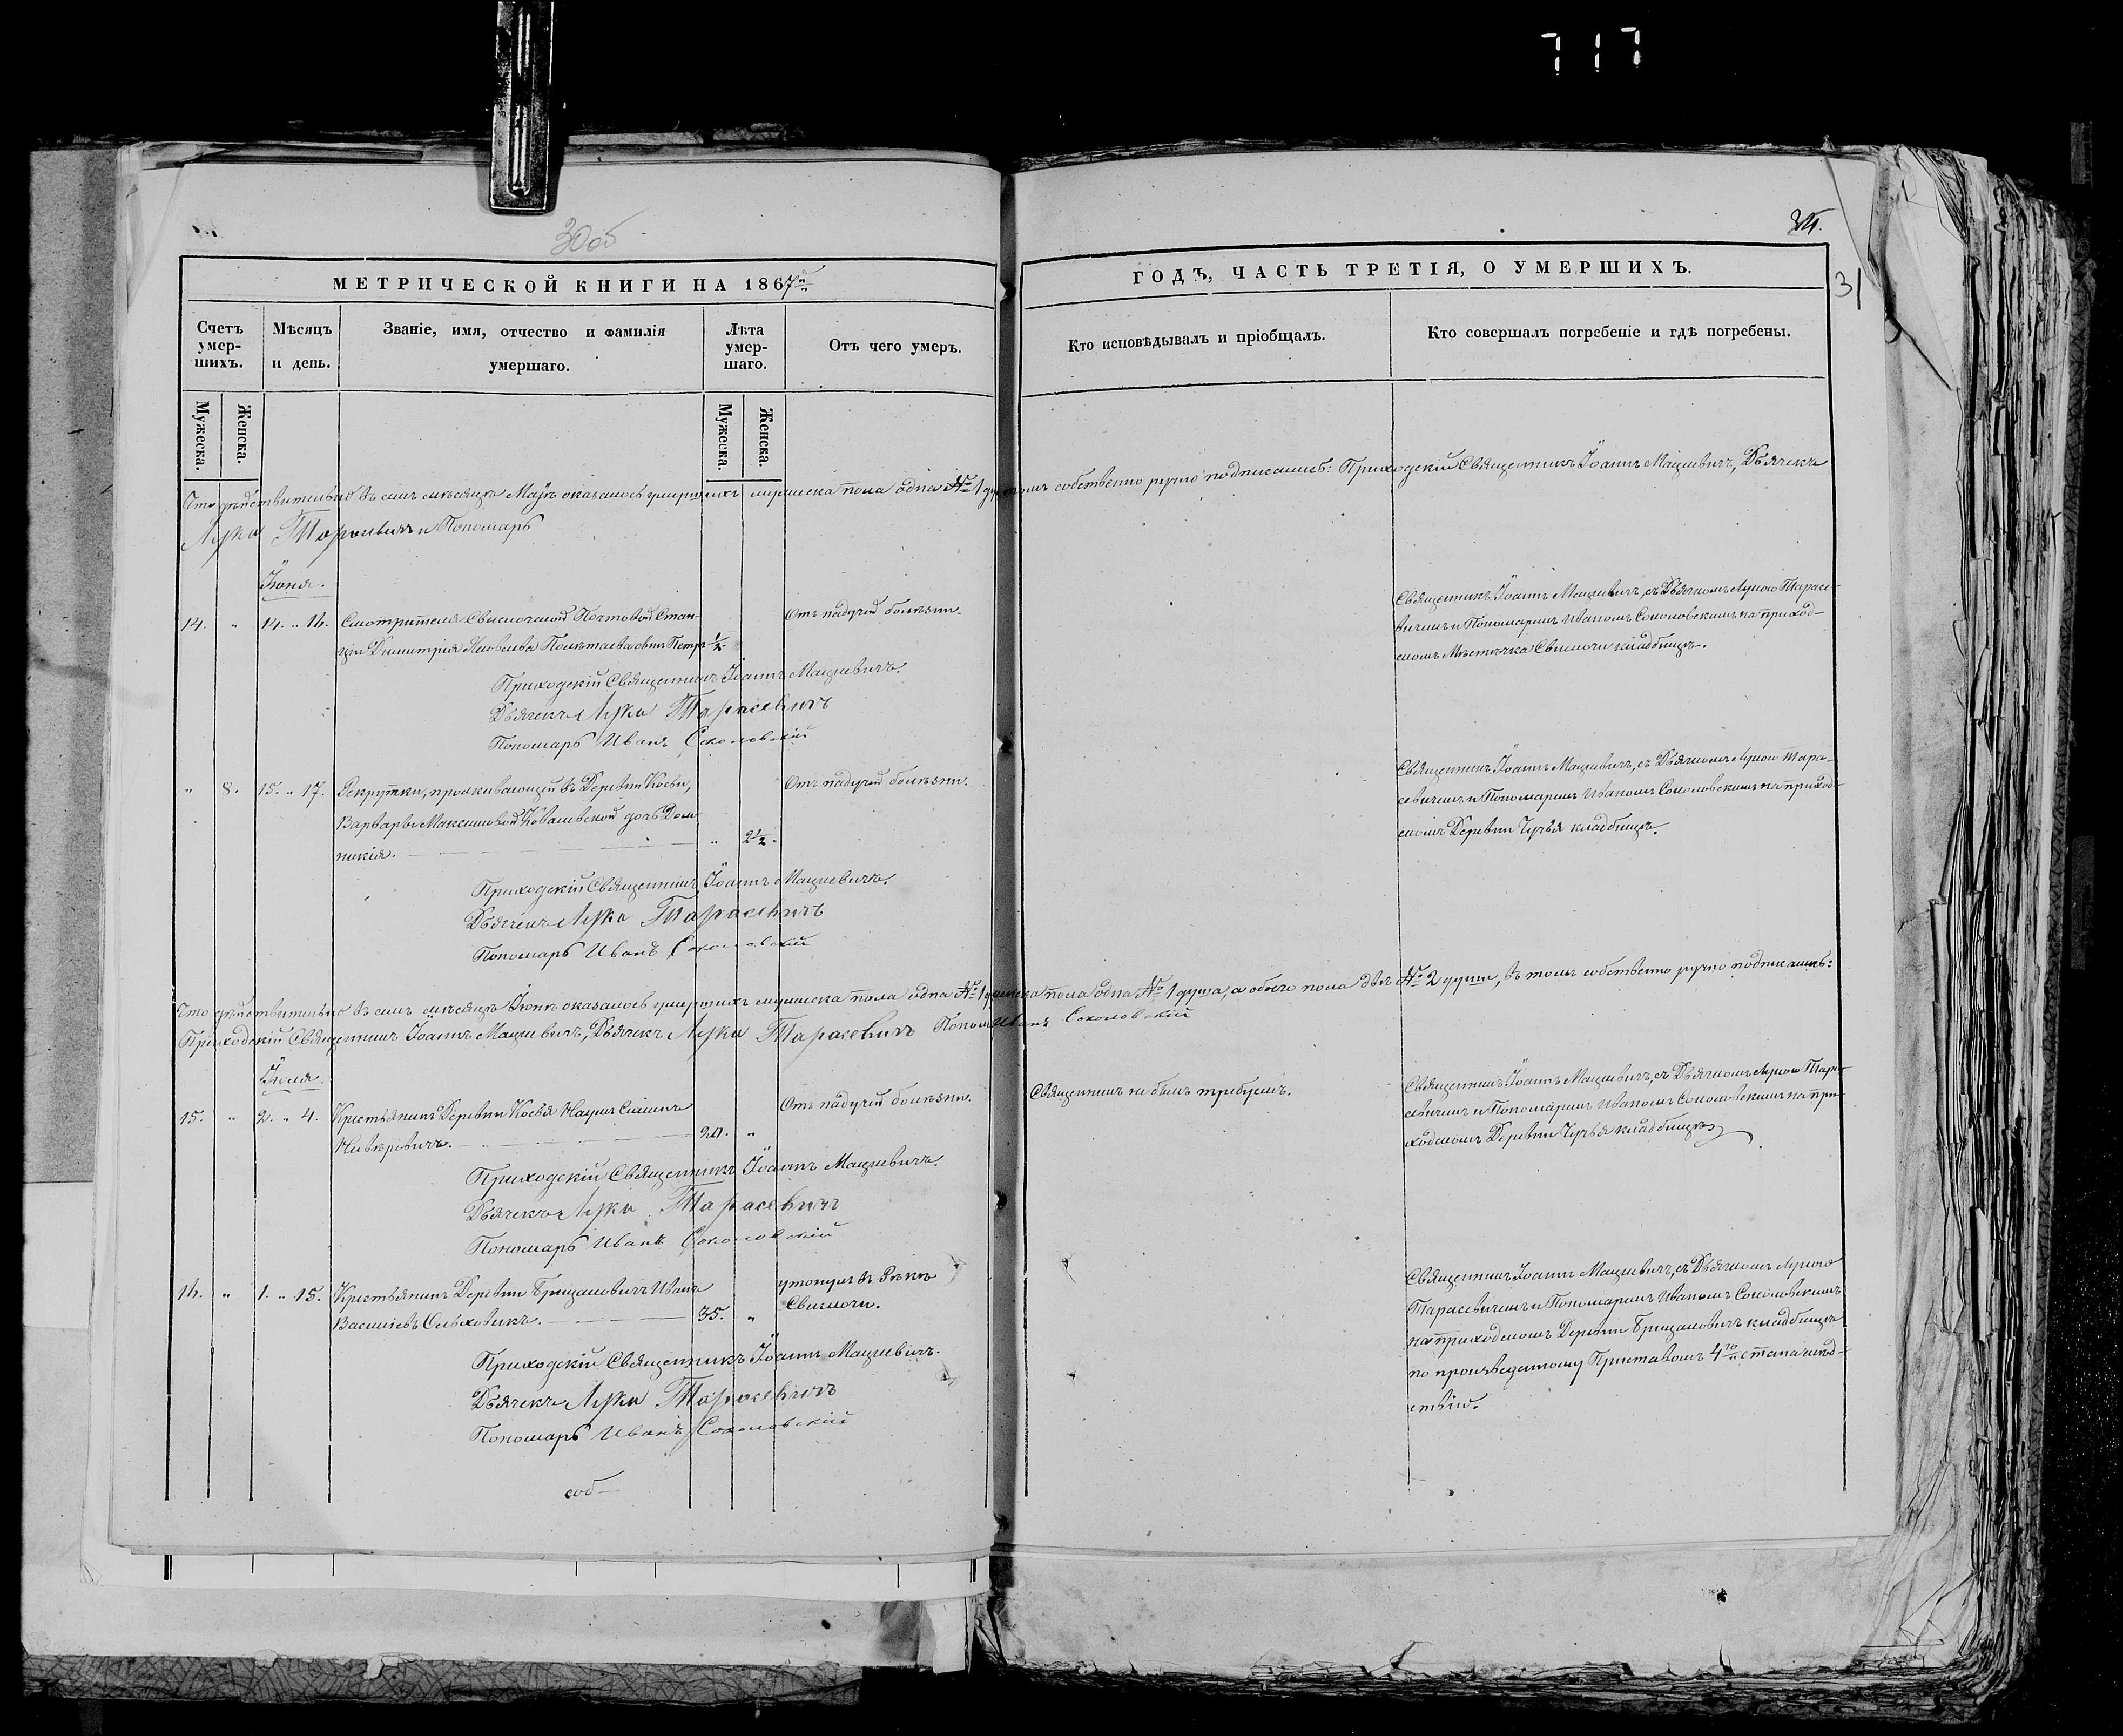 717
30об
31.
31
МЕТРИЧЕСКОЙ КНИГИ НА 1867й
ГОДЪ, ЧАСТЬ ТРЕТІЯ, О УМЕРШИХЪ.
Счетъ умер- шихъ.
Мѣсяцъ и день.
Званіе, имя, отчество и фамилія умершаго.
Лѣта умер- шаго.
Отъ чего умеръ.
Кто исповѣдывалъ и пріобщалъ.
Кто совершалъ погребеніе и гдѣ погребены.
Мужеска.
Женска.
Мужеска.
Женска.
Что дѣйствительно въ семъ мѣсяцѣ Маѣ оказалось умершихъ мужеска пола одна № 1 въ томъ собственно ручно подписались: Приходскій Священникъ Іоаннъ Мацкевичъ, Дьячекъ
Лука Тарасевичъ и Пономарь
Іюня.
14. " 14. " 16. Смотрителя Свислочской Почтовой Стан-
ціи Димитрія Яковлева сынъ Петръ ½.
Отъ падучей болѣзни.
Священникъ Іоаннъ Мацкевичъ, съ Дьячкомъ Лукою Тарасе-
вичемъ и Пономаремъ Иваномъ Соколовскимъ на приход-
скомъ Мѣстечка Свислочи кладбищѣ.
Приходскій Священникъ Іоаннъ Мацкевичъ.
Дьячекъ Лука Тарасевичъ
Пономарь Иванъ Соколовскій
" 8. 15. " 17. Рекрутки, проживающей въ Деревни
Варвары Максимовой Ковалевской дочь Дом-
никія. " 2½.
Отъ падучей болѣзни.
Священникъ Іоаннъ Мацкевичъ, съ Дьячкомъ Лукою Тара-
севичемъ и Пономаремъ Иваномъ Соколовскимъ на приход-
скомъ Деревни кладбищѣ.
Приходскій Священникъ Іоаннъ Мацкевичъ.
Дьячекъ Лука Тарасевичъ
Пономарь Иванъ Соколовскій
Что дѣйствительно въ семъ мѣсяцѣ Іюнѣ оказалось умершихъ мужеска пола одна № 1 женска пола одна № 1 душа, а обоего пола двѣ № 2 души, въ томъ собственно ручно подписались:
Приходскій Священникъ Іоаннъ Мацкевичъ, Дьячекъ Лука Тарасевичъ Поном Иванъ Соколовскій
Іюля.
15. " 2. " 4. Крестьянинъ Деревни Наумъ
20. "
Отъ падучей болѣзни.
Священникъ не былъ требуемъ.
Священникъ Іоаннъ Мацкевичъ, съ Дьячкомъ Лукою Тара-
севичемъ и Пономаремъ Иваномъ Соколовскимъ на при-
ходскомъ Деревни кладбищѣ
Приходскій Священникъ Іоаннъ Мацкевичъ.
Дьячекъ Лука Тарасевичъ
Пономарь Иванъ Соколовскій
16. " 1. " 15. Крестьянинъ Деревни Брицаловичъ Иванъ
Василіевъ Ольховикъ. 35. "
утонулъ въ Рѣкѣ
Свислочи.
Священникъ Іоаннъ Мацкевичъ, съ Дьячкомъ Лукою
Тарасевичемъ и Пономаремъ Иваномъ Соколовскимъ
на приходскомъ Деревни Брицаловичъ кладбищѣ
по произведенному Приставомъ 4го стана слѣд-
ствію.
Приходскій Священникъ Іоаннъ Мацкевичъ.
Дьячекъ Лука Тарасевичъ
Пономарь Иванъ Соколовскій